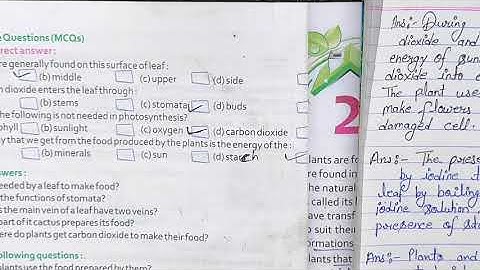 Questions (MCQs)
rrect answer :
re generally found on this surface of leaf :
(b) middle (c) upper (d) side
n dioxide enters the leaf through :
(b) stems (c) stomata (d) buds
he following is not needed in photosynthesis?
phyll (b) sunlight (c) oxygen (d) carbon dioxide
y that we get from the food produced by the plants is the energy of the :
(b) minerals (c) sun (d) starch
swers :
eeded by a leaf to make food?
the functions of stomata?
s the main vein of a leaf have two veins?
part of it cactus prepares its food?
ere do plants get carbon dioxide to make their food?
llowing questions :
plants use the food prepared by them?
2
lants are fo
re found in
the natural
called its
have transf
o suit their
ormations
lants that
Ans:- During
dioxide and
energy of sun
dioxide into
The plant use
make flowers
damaged cell.
Ans:- The prese
by iodine
leaf by boiling
iodine solution
presence of sta
Ans:- Plants and